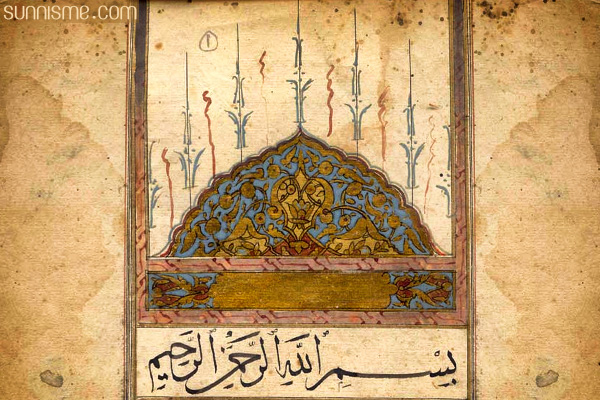 sunnisme.com
١
بِسْمِ اللَّهِ الرَّحْمَٰنِ الرَّحِيمِ